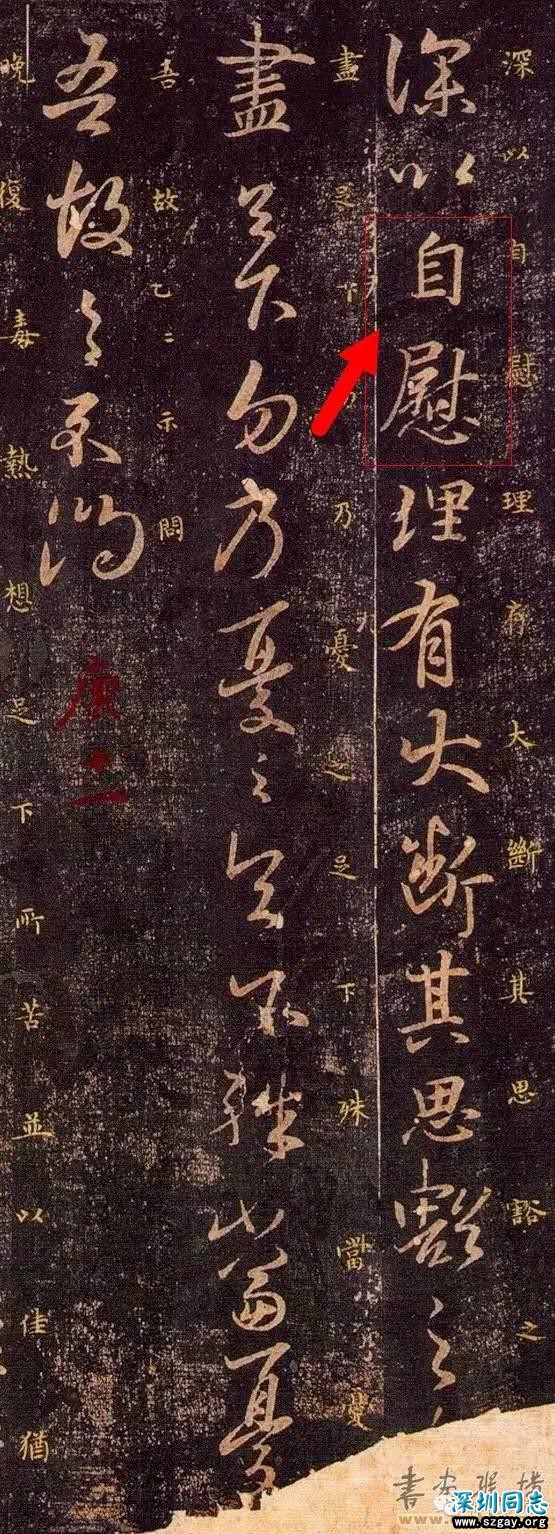 深以自慰理有大斷其思豁之
深以自慰理有大断其思豁之
盡足下勿乃憂之足下殊當憂
盡足下勿乃憂之足下殊當憂
吾故乙乙示問
吾故之示問
晚復毒熱想足下所苦並以佳猶
深圳同志
www.szgay.org